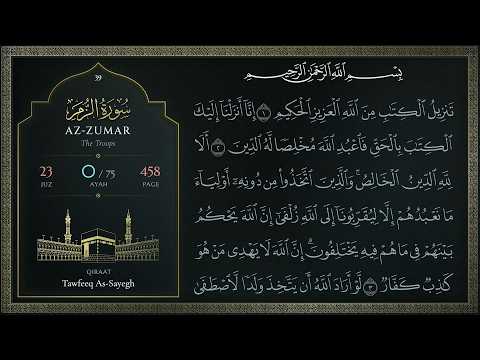 39
سُورَةُ الزُّمَر
AZ-ZUMAR
The Troops
23
JUZ
0 / 75
AYAH
458
PAGE
QIRAAT
Tawfeeq As-Sayegh
بِسْمِ اللَّهِ الرَّحْمَٰنِ الرَّحِيمِ
تَنزِيلُ الْكِتَابِ مِنَ اللَّهِ الْعَزِيزِ الْحَكِيمِ ١ إِنَّا أَنزَلْنَا إِلَيْكَ
الْكِتَابَ بِالْحَقِّ فَاعْبُدِ اللَّهَ مُخْلِصًا لَّهُ الدِّينَ ٢ أَلَا
لِلَّهِ الدِّينُ الْخَالِصُ ۚ وَالَّذِينَ اتَّخَذُوا مِن دُونِهِ أَوْلِيَاءَ
مَا نَعْبُدُهُمْ إِلَّا لِيُقَرِّبُونَا إِلَى اللَّهِ زُلْفَىٰ إِنَّ اللَّهَ يَحْكُمُ
بَيْنَهُمْ فِي مَا هُمْ فِيهِ يَخْتَلِفُونَ ۗ إِنَّ اللَّهَ لَا يَهْدِي مَنْ هُوَ
كَاذِبٌ كَفَّارٌ ٣ لَّوْ أَرَادَ اللَّهُ أَن يَتَّخِذَ وَلَدًا لَّاصْطَفَىٰ